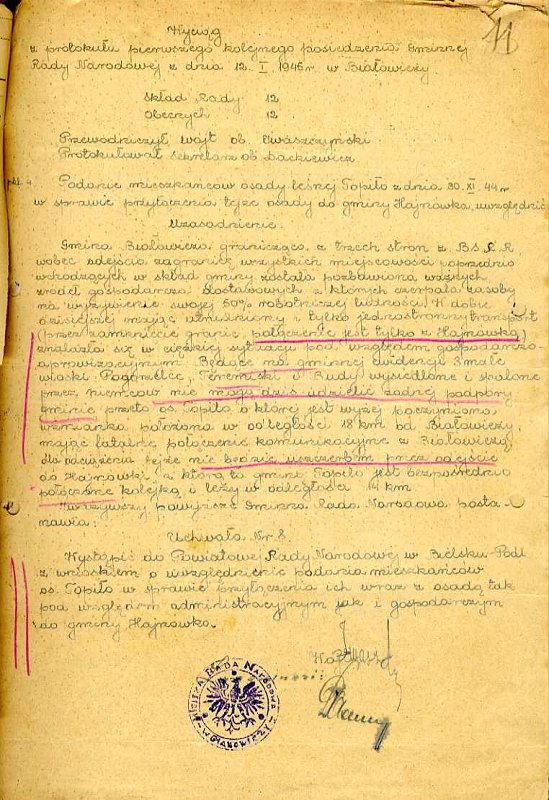 11
Wyciąg
z protokułu pierwszego kolejnego posiedzenia Gminnej
Rady Narodowej z dnia 12. I. 1945 r. w Białowieży
Skład Rady 12
Obecnych 12
Przewodniczył wójt ob. Iwaszczyński
Protokułował sekretarz ob. Dackiewicz
pkt. 4. Podanie mieszkańców osady leśnej Topiło z dnia 30. XI. 44 r.
w sprawie przyłączenia tejże osady do gminy Hajnówka, uwzględnić
Uzasadnienie:
Gmina Białowieża granicząca, z trzech stron z B.S.R.R
wobec odejścia zagranicę wszystkich miejscowości poprzednio
wchodzących w skład gminy została pozbawiona ważnych
źródeł gospodarczo dostawowych z których czerpała zasoby
na wyżywienie swojej 60% robotniczej ludności. W dobie
dzisiejszej mając utrudniony i tylko jednostronny transport
(przez zamknięcie granic, połączenie jest tylko z Hajnówką)
znalazła się w ciężkiej sytuacji pod względem gospodarczo
aprowizacyjnym. Będące na gminnej ewidencji 3 małe
wioski Pogorzelce, Teremiski i Budy wysiedlone i spalone
przez niemców nie mogą dziś udzielić żadnej podpory
gminie przeto os. Topiło o której jest wyżej poczyniona
wzmianka położona w odległości 18 km od Białowieży,
mając fatalne połączenie komunikacyjne z Białowieżą
dla odciążenia tejże nie będzie uszczerbem przez odejście
do Hajnówki, z którą to gminą Topiło jest bezpośrednio
połączone kolejką i leży w odległości 14 km.
Zważywszy powyższe Gminna Rada Narodowa posta-
nawia:
Uchwała Nr 8.
Wystąpić do Powiatowej Rady Narodowej w Bielsku-Podl
z wnioskiem o uwzględnienie podania mieszkańców
os. Topiło w sprawie przyłączenia ich wraz z osadą tak
pod względem administracyjnym jak i gospodarczym
do gminy Hajnówka.
RADA NARODOWA
W BIAŁOWIEŻY